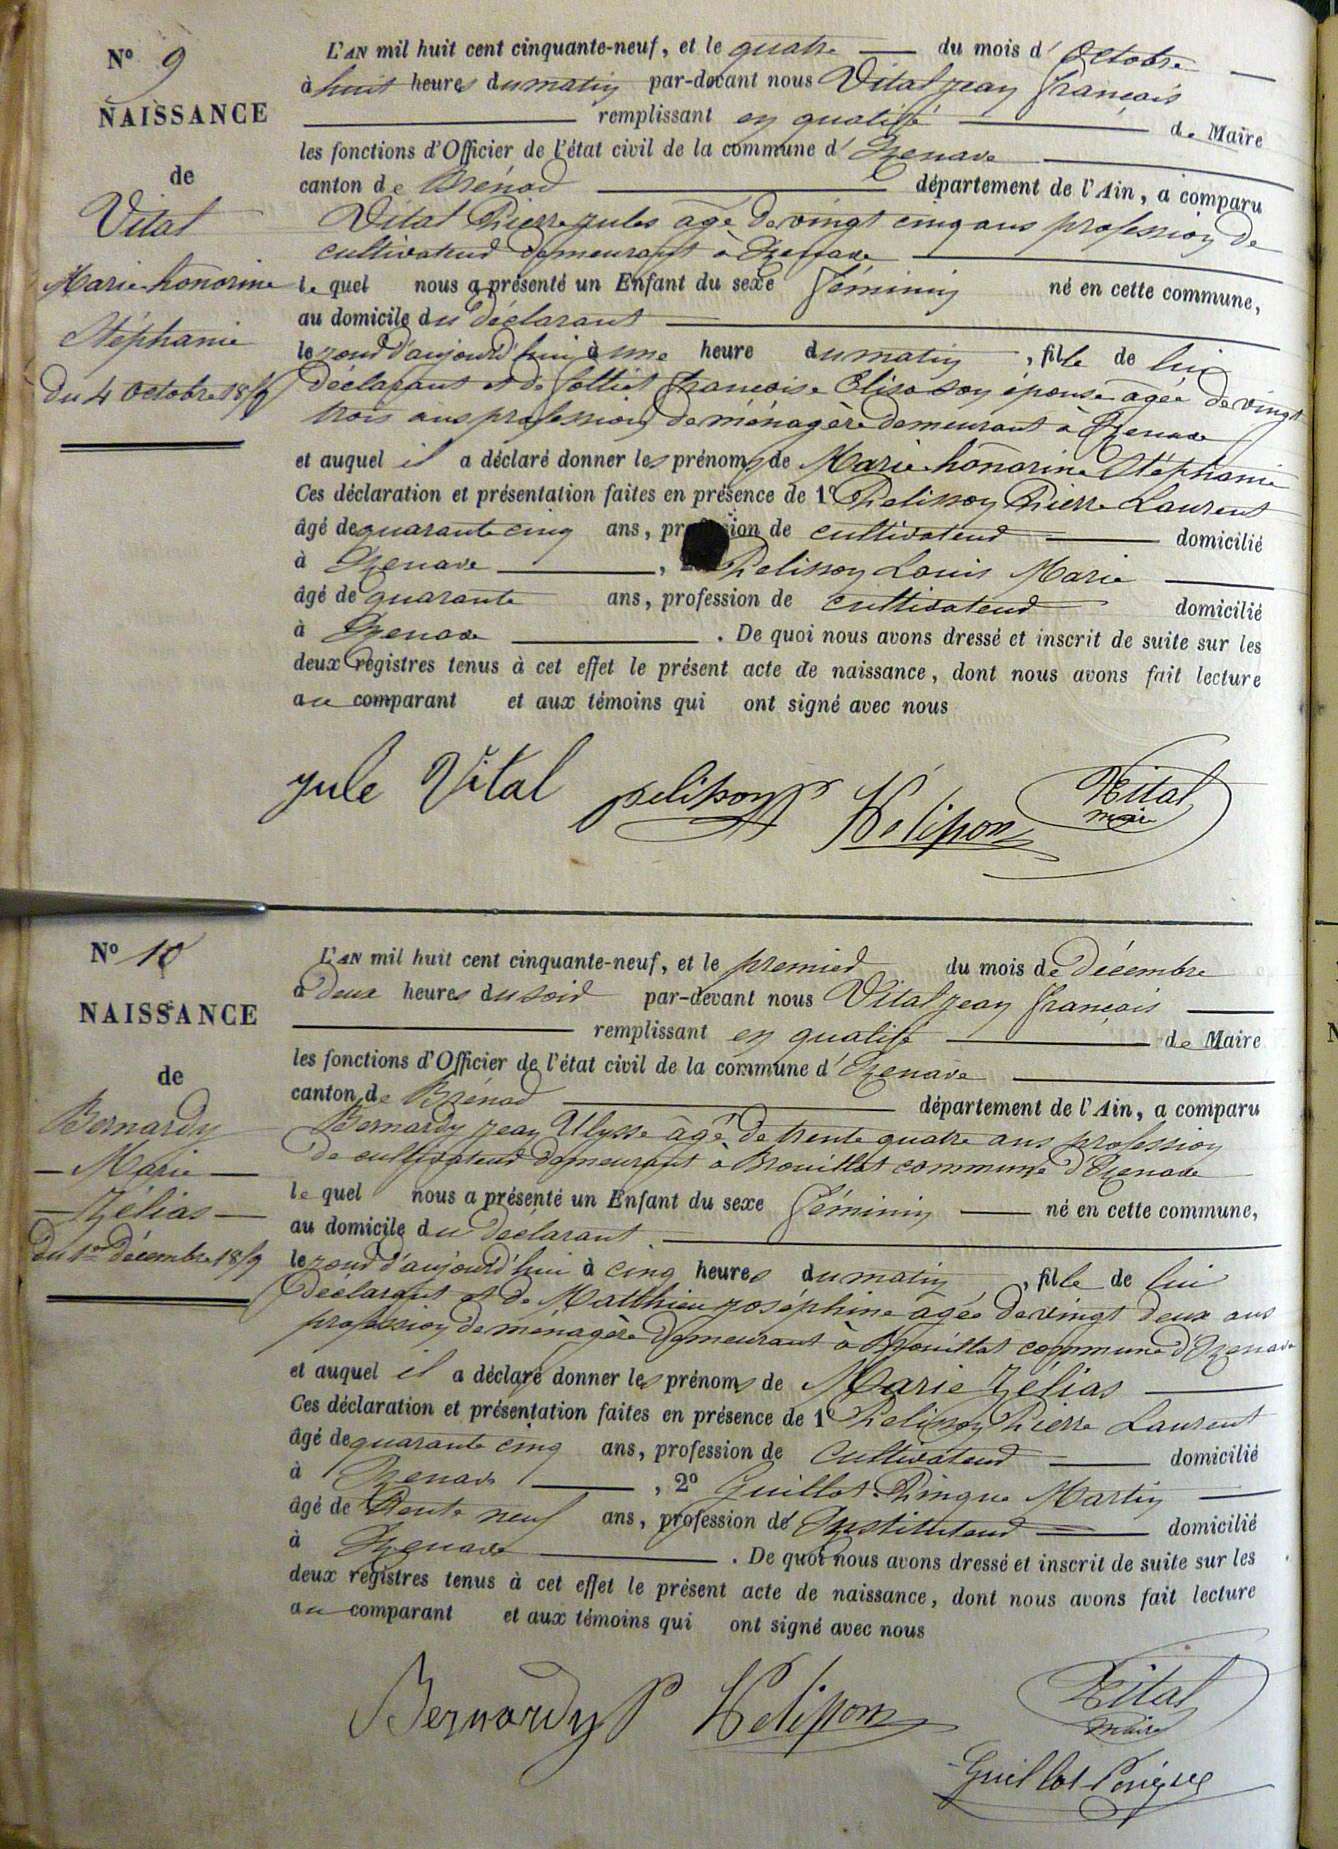 N° 9
NAISSANCE
de
Vital
Marie honorine
Stéphanie
du 4 octobre 1859
L'AN mil huit cent cinquante-neuf, et le quatre du mois d'Octobre
à huit heures du matin par-devant nous Vital jean françois
remplissant en qualité de Maire
les fonctions d'Officier de l'état civil de la commune d'Izenave
canton de Brénod département de l'Ain, a comparu
Vital Pierre jules âgé de vingt cinq ans profession de
cultivateur demeurant à Izenave
le quel nous a présenté un Enfant du sexe féminin né en cette commune,
au domicile du déclarant
le jour d'aujourd'hui à une heure du matin, fille de lui
déclarant et de françoise Elisa son épouse agée de vingt
trois ans profession de ménagère demeurant à Izenave
et auquel il a déclaré donner les prénoms de Marie honorine Stéphanie
Ces déclaration et présentation faites en présence de 1° Pelisson Pierre Laurent
âgé de quarante cinq ans, profession de cultivateur domicilié
à Izenave, 2° Pelisson Louis Marie
âgé de quarante ans, profession de cultivateur domicilié
à Izenave. De quoi nous avons dressé et inscrit de suite sur les
deux registres tenus à cet effet le présent acte de naissance, dont nous avons fait lecture
au comparant et aux témoins qui ont signé avec nous
jule Vital pelisson Pelisson Vital
maire
N° 10
NAISSANCE
de
Bernardy
Marie
Zélias
du 1er décembre 1859
L'AN mil huit cent cinquante-neuf, et le premier du mois de décembre
à deux heures du soir par-devant nous Vital jean françois
remplissant en qualité de Maire
les fonctions d'Officier de l'état civil de la commune d'Izenave
canton de Brénod département de l'Ain, a comparu
Bernardy jean Ulysse âgé de trente quatre ans profession
de cultivateur demeurant à Brouillat commune d'Izenave
le quel nous a présenté un Enfant du sexe féminin né en cette commune,
au domicile du déclarant
le jour d'aujourd'hui à cinq heures du matin, fille de lui
déclarant et de Matthieu joséphine agée de vingt deux ans
profession de ménagère demeurant à Brouillat commune d'Izenave
et auquel il a déclaré donner les prénoms de Marie Zélias
Ces déclaration et présentation faites en présence de 1° Pelisson Pierre Laurent
âgé de quarante cinq ans, profession de cultivateur domicilié
à Izenave, 2° Guillot Martin
âgé de trente neuf ans, profession de Instituteur domicilié
à Izenave. De quoi nous avons dressé et inscrit de suite sur les
deux registres tenus à cet effet le présent acte de naissance, dont nous avons fait lecture
au comparant et aux témoins qui ont signé avec nous
Bernardy Pelisson Vital
maire
Guillot